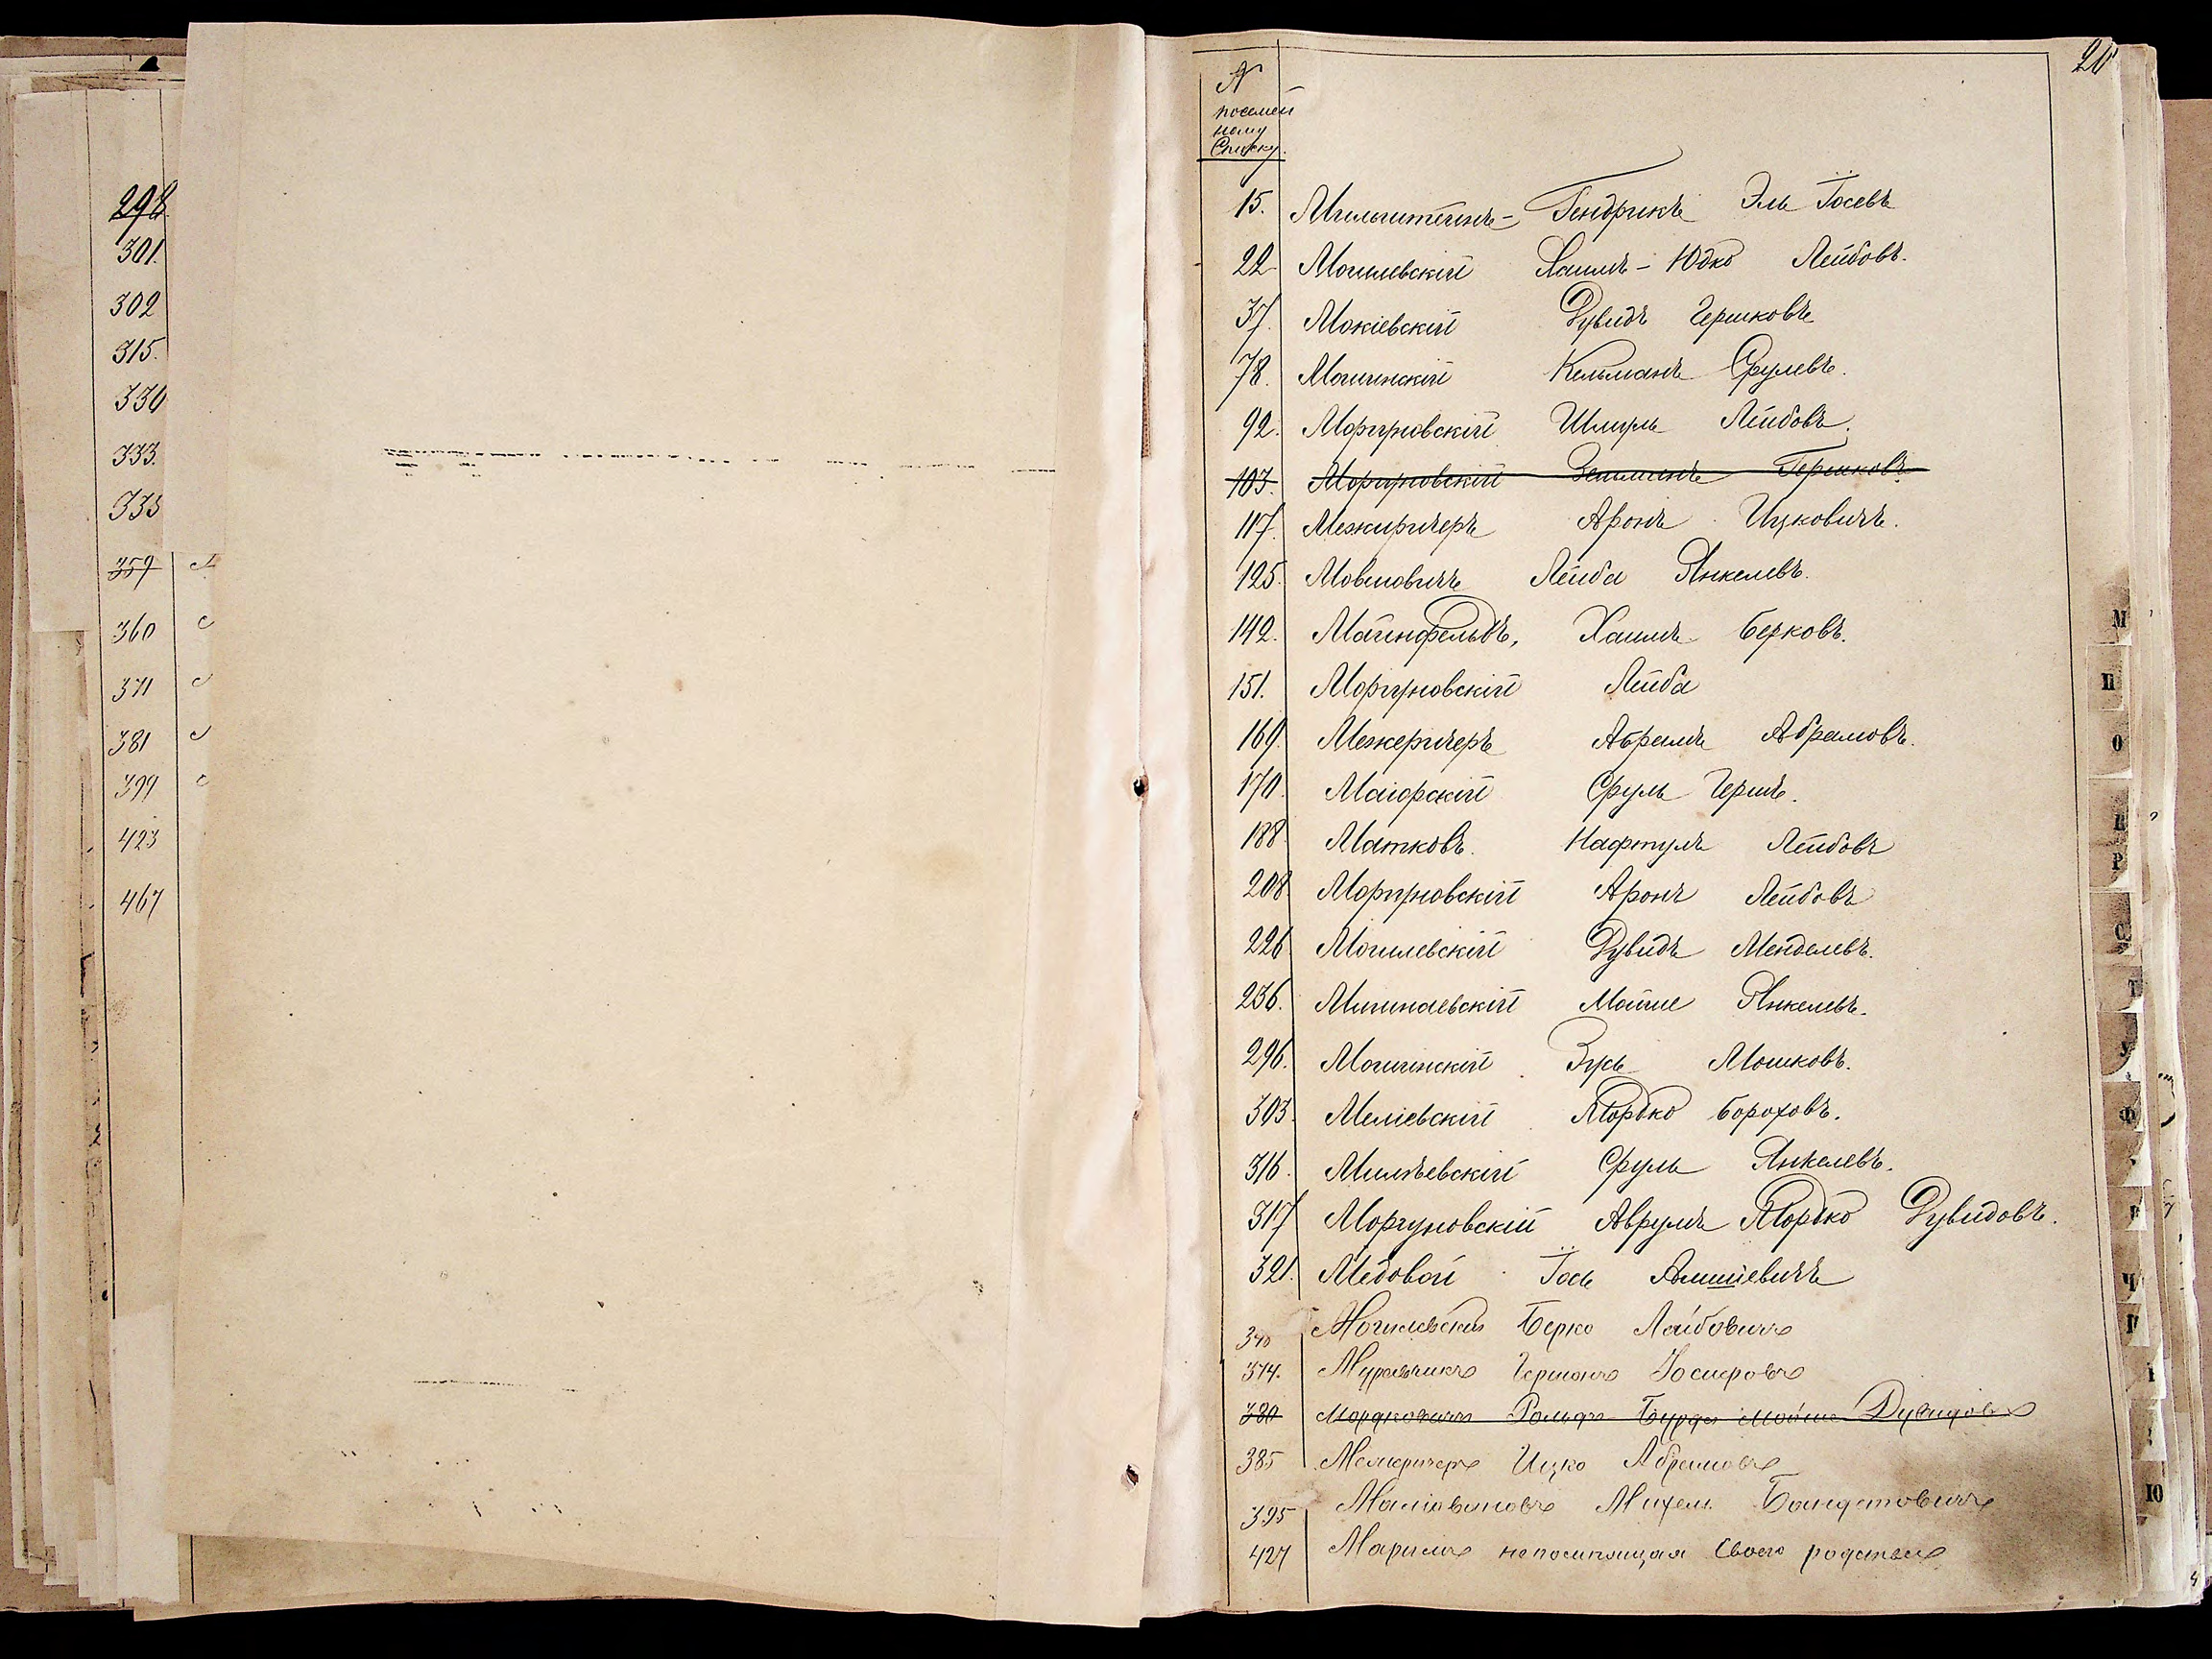 298.
301.
302
315.
330
333.
333
359
360
371
381
399
423
467
20
№
посемей
ному
Списку.
15. Мильштейнъ - Гендрикъ Эль Іосевъ
22 Могилевскій Хаимъ - Юдко Лейбовъ.
37. Мокіевскій Дувидъ Гершковъ
78. Могилинскій Кельманъ Срулевъ.
92. Моргуновскій Шмуль Лейбовъ.
103. Моргуновскій Зельманъ Гершковъ.
117. Межиричеръ Аронъ Ицковичъ.
125. Мовшовичъ Лейба Янкелевъ.
142. Майнфельдъ, Хаимъ Берковъ.
151. Моргуновскій Лейба
169. Межеричеръ Абрамъ Абрамовъ.
170. Маіорскій Сруль Гершъ.
188 Матковъ. Нафтулъ Лейбовъ
208 Моргуновскій Аронъ Лейбовъ
226 Могилевскій Дувидъ Менделевъ.
236. Мошке Янкелевъ.
296. Могилинскій Зусь Мошковъ.
303. Меліевскій Мордко Бороховъ.
316. Милѣевскій Сруль Янкелевъ.
317 Моргуновскій Аврумъ Мордко Дувидовъ.
321. Медовой Іось
340 Могилевскій Берко Лейбовичъ
374. Муравчикъ Германъ Іосифовъ
380 Мордковичъ Мойше Дувидовъ
385 Межеричеръ Ицко Абрамовъ
395 Михель
427 Марьимъ непомнящая своего родства
М
П
О
П
Р
С
Т
У
Ф
Ч
Ю